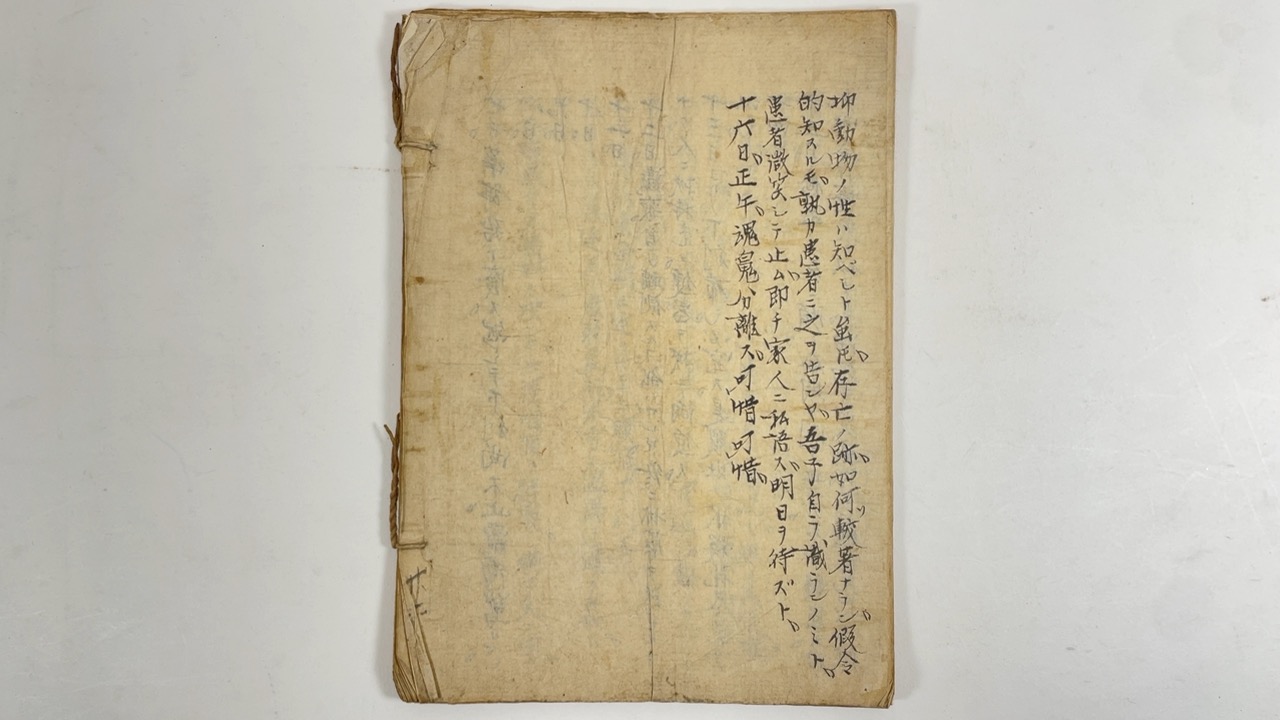 抑動物ノ性ハ知ベシト虽𪜈存亡ノ跡如何較著ナラン假令
的知スルモ孰カ患者ニ之ヲ告ンヤ吾子自ラ識ランノミト
患者微笑シテ止ム即チ家人ニ私語ス明日ヲ待ズト
十六日正午魂鬼分離ス可惜可惜
十二